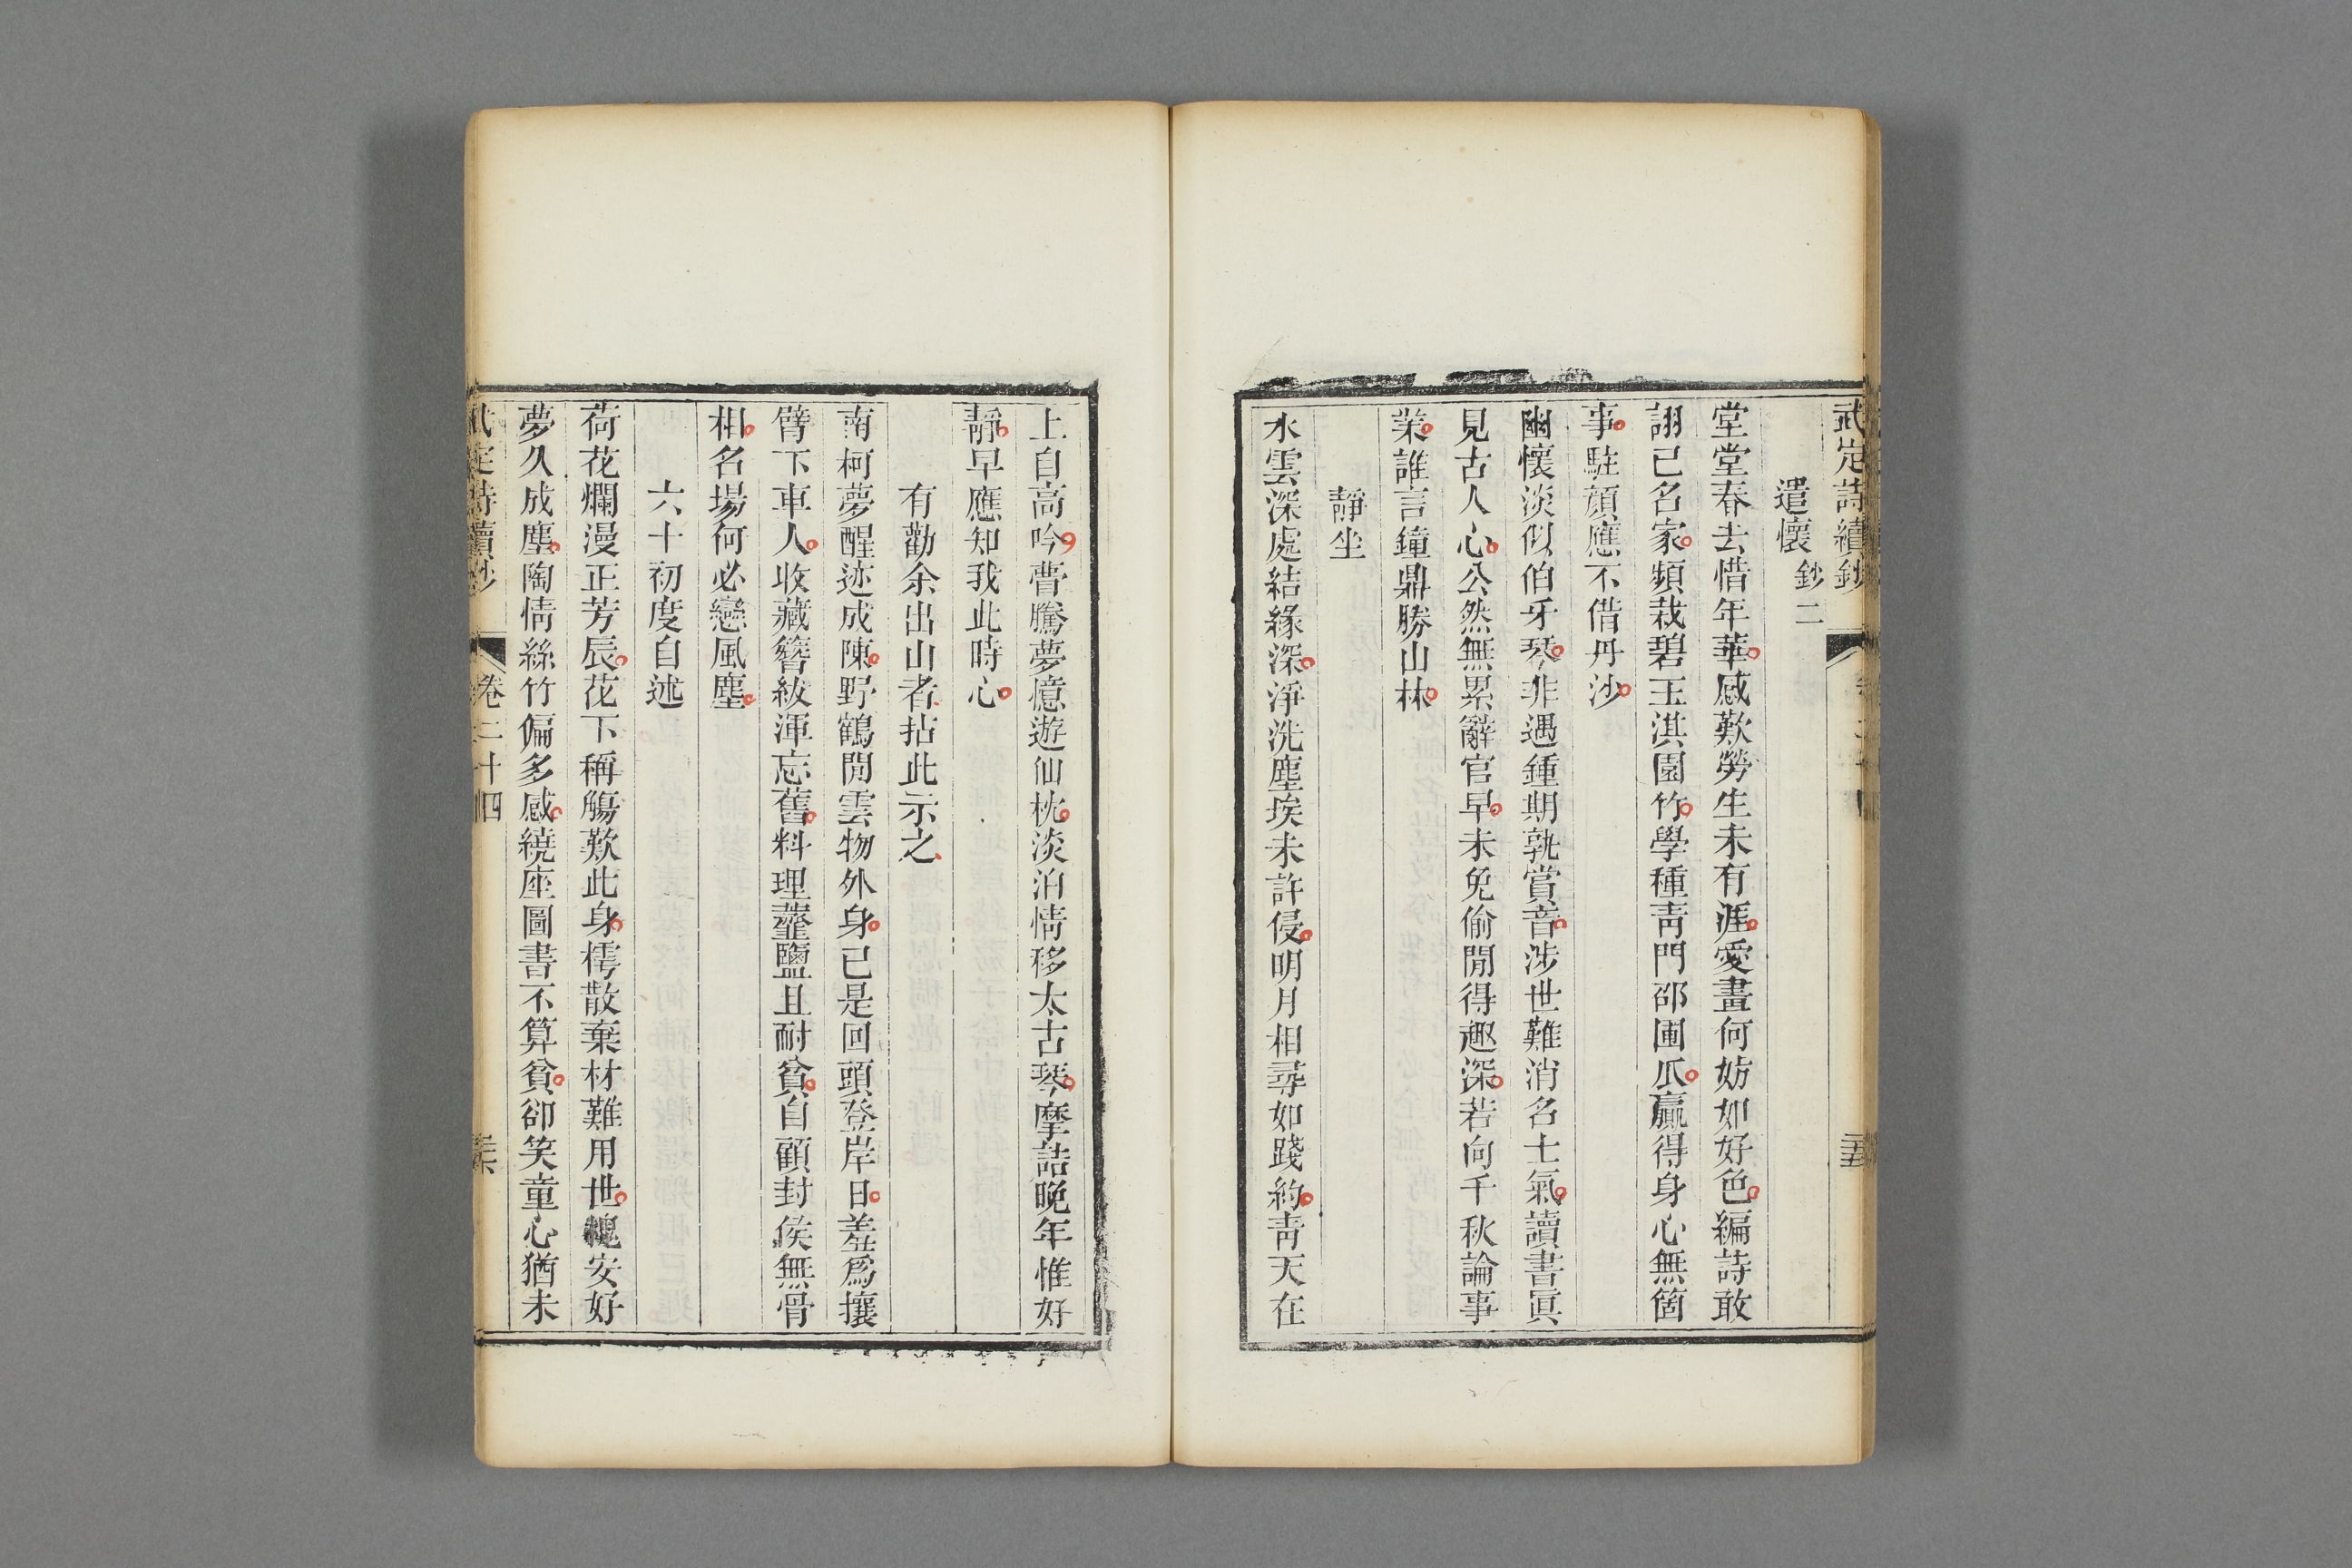 武定詩續鈔
遣懷鈔二
堂堂春去惜年華感歎勞生未有涯愛畫何妨如好色編詩敢
詡已名家頻栽碧玉淇園竹學種靑門邵圃瓜贏得身心無箇
事駐顏應不借丹沙
幽懷淡似伯牙琴非遇鍾期孰賞音涉世難消名士氣讀書眞
見古人心公然無累辭官早未免偷閒得趣深若向千秋論事
業誰言鐘鼎勝山林
靜坐
水雲深處結緣深淨洗塵埃未許侵明月相尋如踐約靑天在
上自高吟瞢騰夢憶遊仙枕淡泊情移太古琴摩詰晚年惟好
靜早應知我此時心
有勸余出山者拈此示之
南柯夢醒迹成陳野鶴閒雲物外身已是回頭登岸日羞爲攘
臂下車人收藏簪紱渾忘舊料理虀鹽且耐貧自顧封侯無骨
相名場何必戀風塵
六十初度自述
荷花爛漫正芳辰花下稱觴歎此身樗散棄材難用世槐安好
夢久成塵陶情絲竹偏多感繞座圖書不算貧卻笑童心猶未
武定詩續鈔 卷二十四